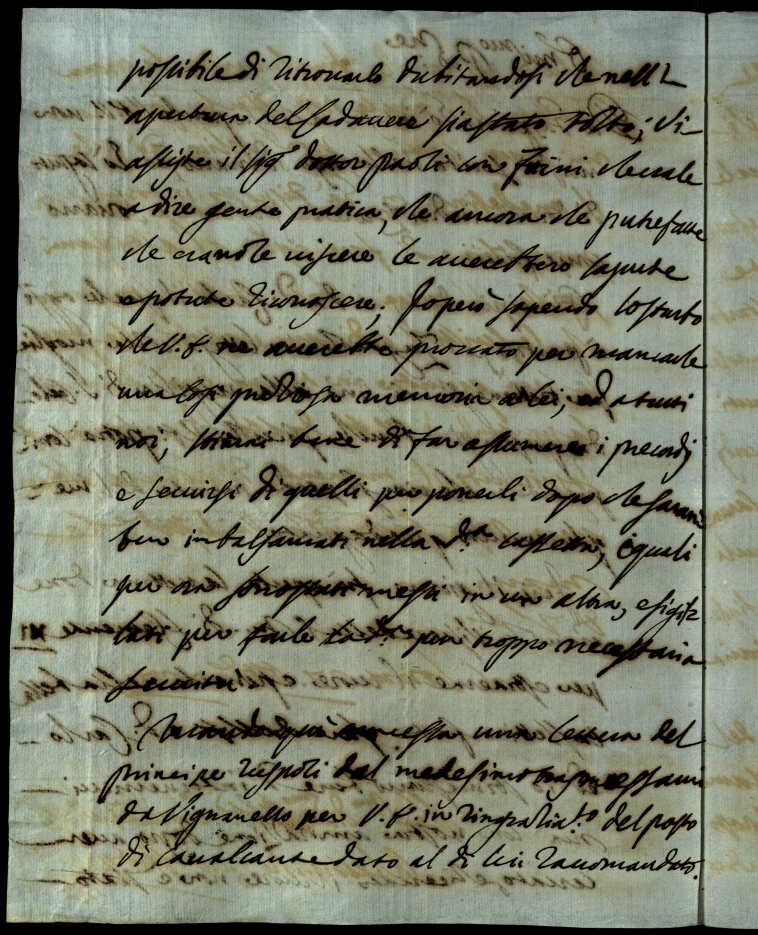 possibile di ritrovarlo dubitandosi che nell'
apertura del Cadavere sia stato tolto; vi
assistè il sig.r dottor paoli con Trini che vale
a dire gente pratica, che ancora che putrefatte
che erano le viscere le avrebbero sapute
e potute riconoscere; Io però sapendo lo
che V. E. ne avrebbe provato per mancarle
una così pretiosa memoria a lei, ed a tutti
noi, stimai bene di far assumere i precordj
e servirsi di quelli per ponerli dopo che saranno
ben imbalsamati nella d.ta cassetta, i quali
per ora sono stati messi in un altra, e sigil
lati per farle la d.a pur troppo necessaria

qui annessa una lettera del
principe Ruspoli dal medesimo trasmessami
da Vignanello per V. E. in ringratia.to del posto
di Cavalcante dato al di lui raccomandato.